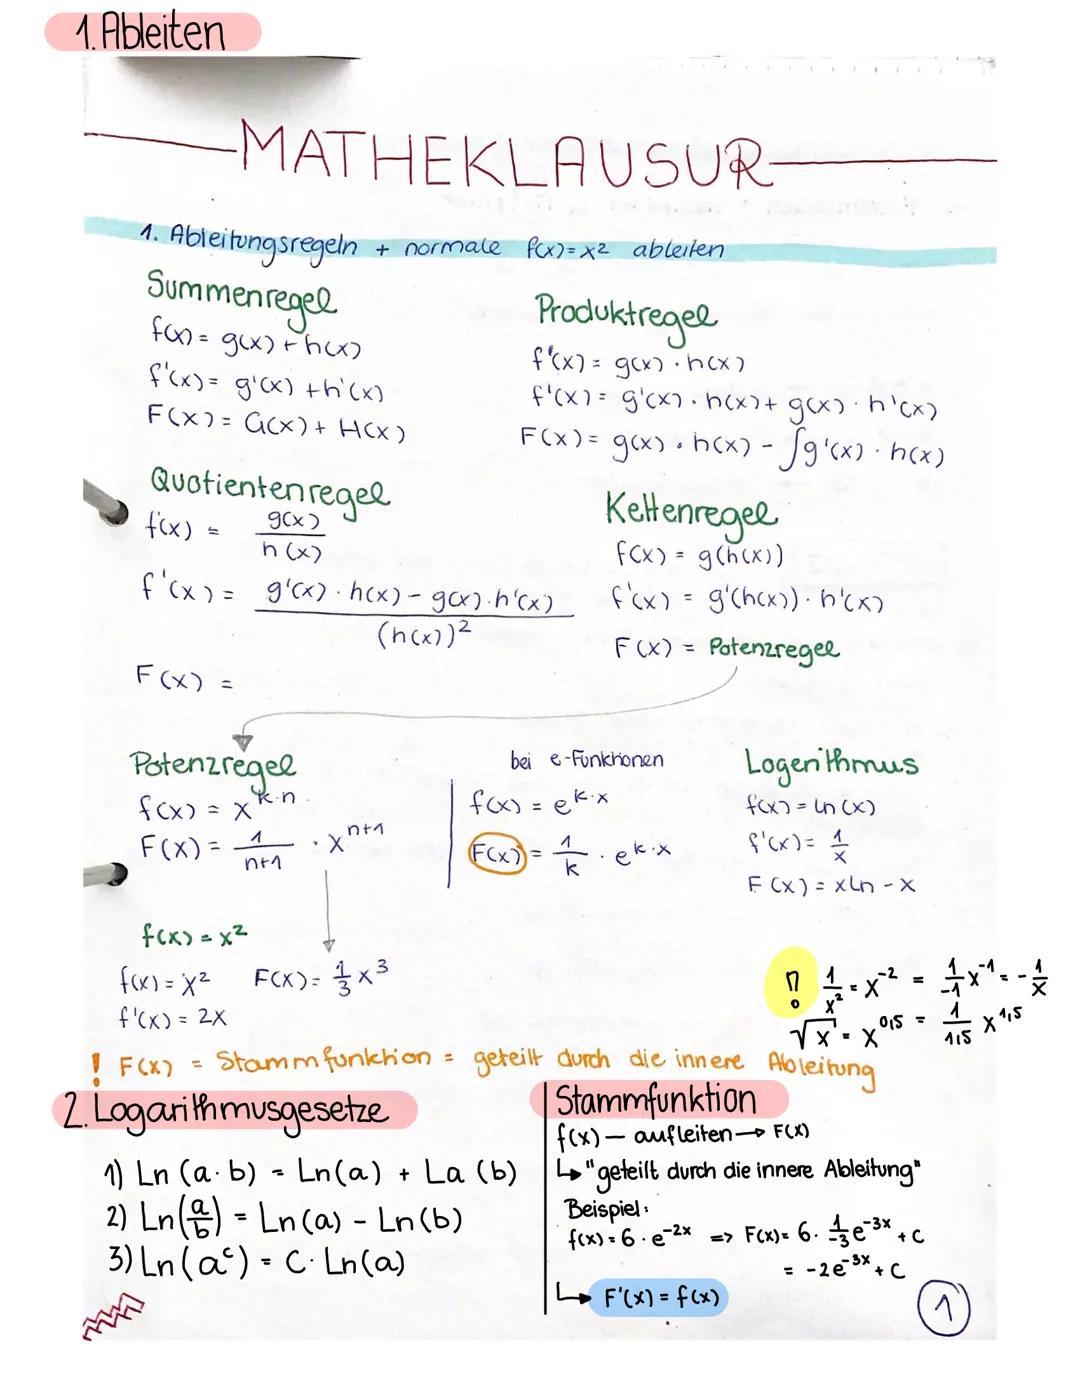 1. Ableiten
MATHEKLAUSUR
1. Ableitungsregeln + normale f(x)=x² ableiten
Summenregel
f(x) = g(x) + h(x)
f'(x) = g'(x) + h'(x)
F(x) = G(x) + H(x)
Produktregel
f'(x) = g(x) · h(x)
f'(x) = g'(x) · h(x) + g(x) · h'(x)
F(x) = g(x) · h(x) - ∫g'(x) · h(x)
Quotientenregel
f(x) = g(x) / h(x)
f'(x) = g'(x) · h(x) - g(x) · h'(x) / (h(x))²
F(x) =
Kettenregel
f(x) = g(h(x))
f'(x) = g'(h(x)) · h'(x)
F(x) = Potenzregel
Potenzregel
f(x) = x^k·n
F(x) = 1/n+1 · x^n+1
bei e-Funktionen
f(x) = e^k·x
F(x) = 1/k · e^k·x
Logerithmus
f(x) = ln(x)
f'(x) = 1/x
F(x) = xln - x
f(x) = x²
f(x) = x² F(x) = 1/3 x³
f'(x) = 2x
! 1/x² = x^-2 = 1/-1 x^-1 = - 1/x
√x = x^0,5 = 1/1,5 x^1,5
! F(x) = Stammfunktion = geteilt durch die innere Ableitung
2. Logarithmusgesetze
1) Ln (a · b) = Ln(a) + La (b)
2) Ln(a/b) = Ln(a) - Ln(b)
3) Ln(a^c) = C · Ln(a)
Stammfunktion
f(x) — aufleiten → F(x)
↳ "geteilt durch die innere Ableitung"
Beispiel:
f(x) = 6 · e^-2x => F(x) = 6 · 1/-3 e^-3x + C
= -2e^-3x + C
↳ F'(x) = f(x)
1